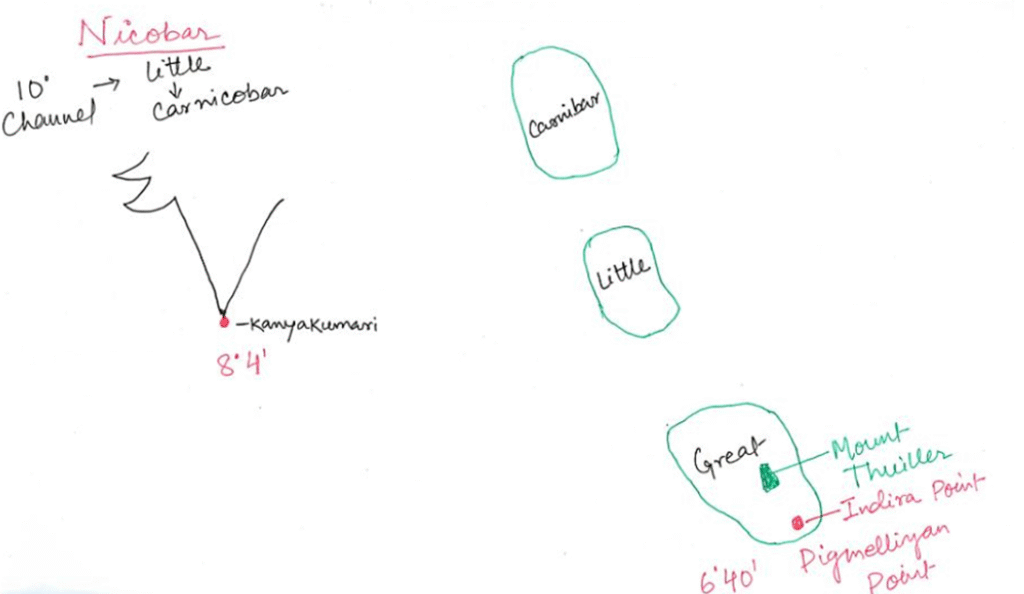 Nicobar
10° Channel → Little
↓
Carnicobar
Carnibar
Little
-Kanyakumari
8°4'
Great
Mount
Thuiller
Indira Point
Pigmelliyan
Point
6°40'